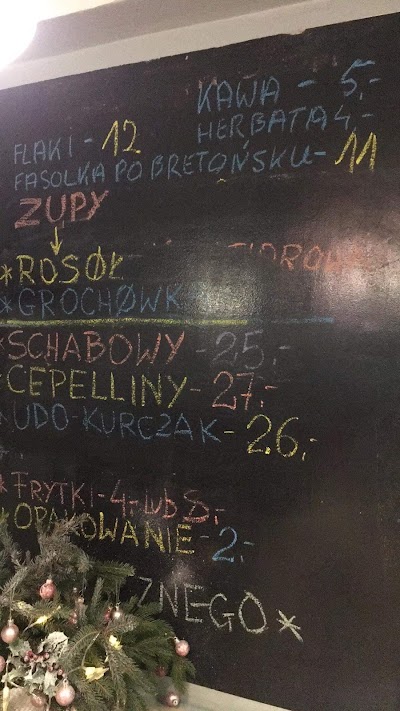 KAWA - 5,-
HERBATA 4,-
FLAKI - 12
FASOLKA PO BRETOŃSKU - 11
ZUPY
*ROSÓŁ
*GROCHÓWK
*SCHABOWY - 25,-
*CEPELLINY - 27,-
UDO-KURCZAK - 26,-
*FRYTKI - 4,- lub 5,-
*OPAKOWANIE - 2,-
ZNEGO*